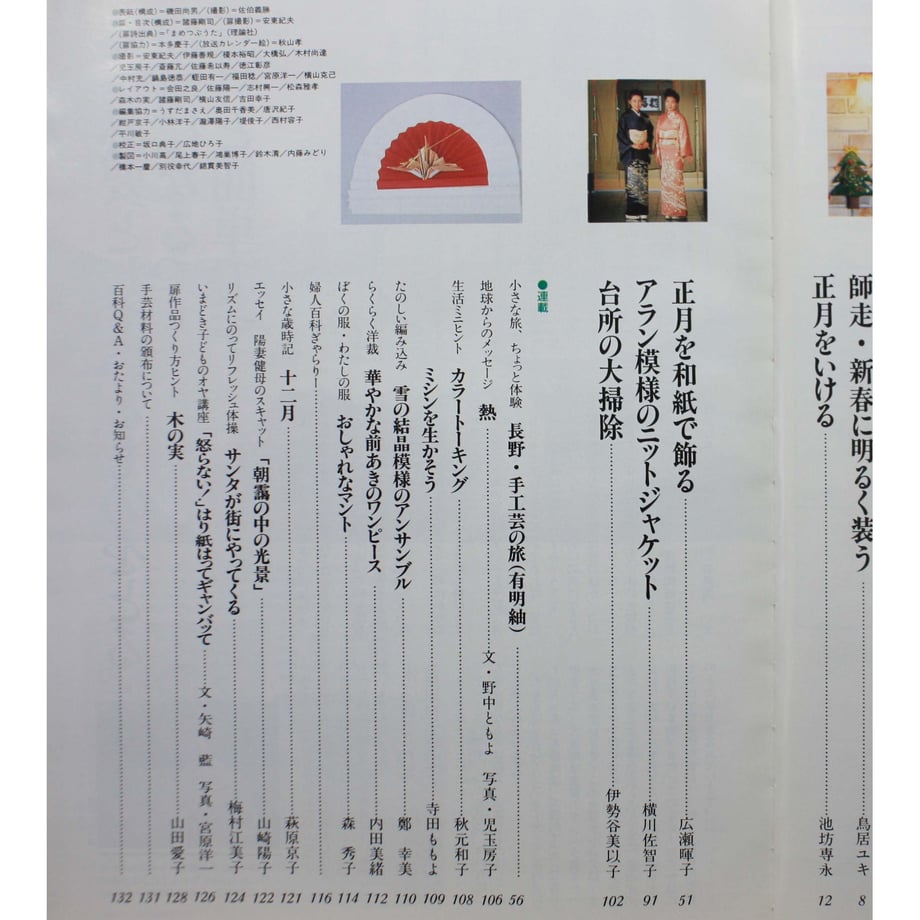 師走・新春に明るく装う……鳥居ユキ 8
正月をいける……池坊専永 12
正月を和紙で飾る……広瀬暉子 51
アラン模様のニットジャケット……横川佐智子 91
台所の大掃除……伊勢谷美以子 102
●連載
小さな旅、ちょっと体験 長野・手工芸の旅(有明紬)……56
地球からのメッセージ 熱……文・野中ともよ 写真・児玉房子 106
生活ミニヒント カラートーキング……秋元和子 108
ミシンを生かそう……寺田ももよ 109
たのしい編み込み 雪の結晶模様のアンサンブル……鄭 幸美 110
らくらく洋裁 華やかな前あきのワンピース……内田美緒 112
ぼくの服・わたしの服 おしゃれなマント……森 秀子 114
婦人百科ぎゃらりー……116
小さな歳時記 十二月……萩原京子 121
エッセイ 陽妻健母のスキャット 「朝靄の中の光景」……山崎陽子 122
リズムにのってリフレッシュ体操 サンタが街にやってくる……梅村江美子 124
いまどき子どものオヤ講座 「怒らない!」はり紙はってギャンバッて……文・矢崎 藍 写真・宮原洋一 126
扉作品つくり方ヒント 木の実……山田愛子 128
手芸材料の頒布について……131
百科Q&A・おたより・お知らせ……132
●表紙(構成)=磯田尚男/(撮影)=佐伯義勝
●扉・目次(構成)=諸藤剛司/(扉撮影)=安東紀夫
/(扉詩出典)=「まめつぶうた」(理論社)
/(扉協力)=本多慶子/(放送カレンダー絵)=秋山孝
●撮影=安東紀夫/伊藤善規/榎本裕昭/大橋弘/木村尚達
/児玉房子/斎藤亢/佐藤志以寿/徳江彰彦
/中村充/鍋島徳恭/蛭田有一/福田稔/宮原洋一/横山克己
●レイアウト=会田之良/佐藤陽一/志村興一/松森雅孝
/森木の実/諸藤剛司/横山友信/吉田幸子
●編集協力=うすだまさえ/島田千香美/唐沢紀子
/紺戸京子/小林洋子/瀧澤陽子/堤俊子/西村容子
/平川敏子
●校正=坂口典子/広地ひろ子
●製図=小川髙/尾上春子/鴻巣博子/鈴木清/内藤みどり
/橋本一慶/別役幸代/綿貫美智子